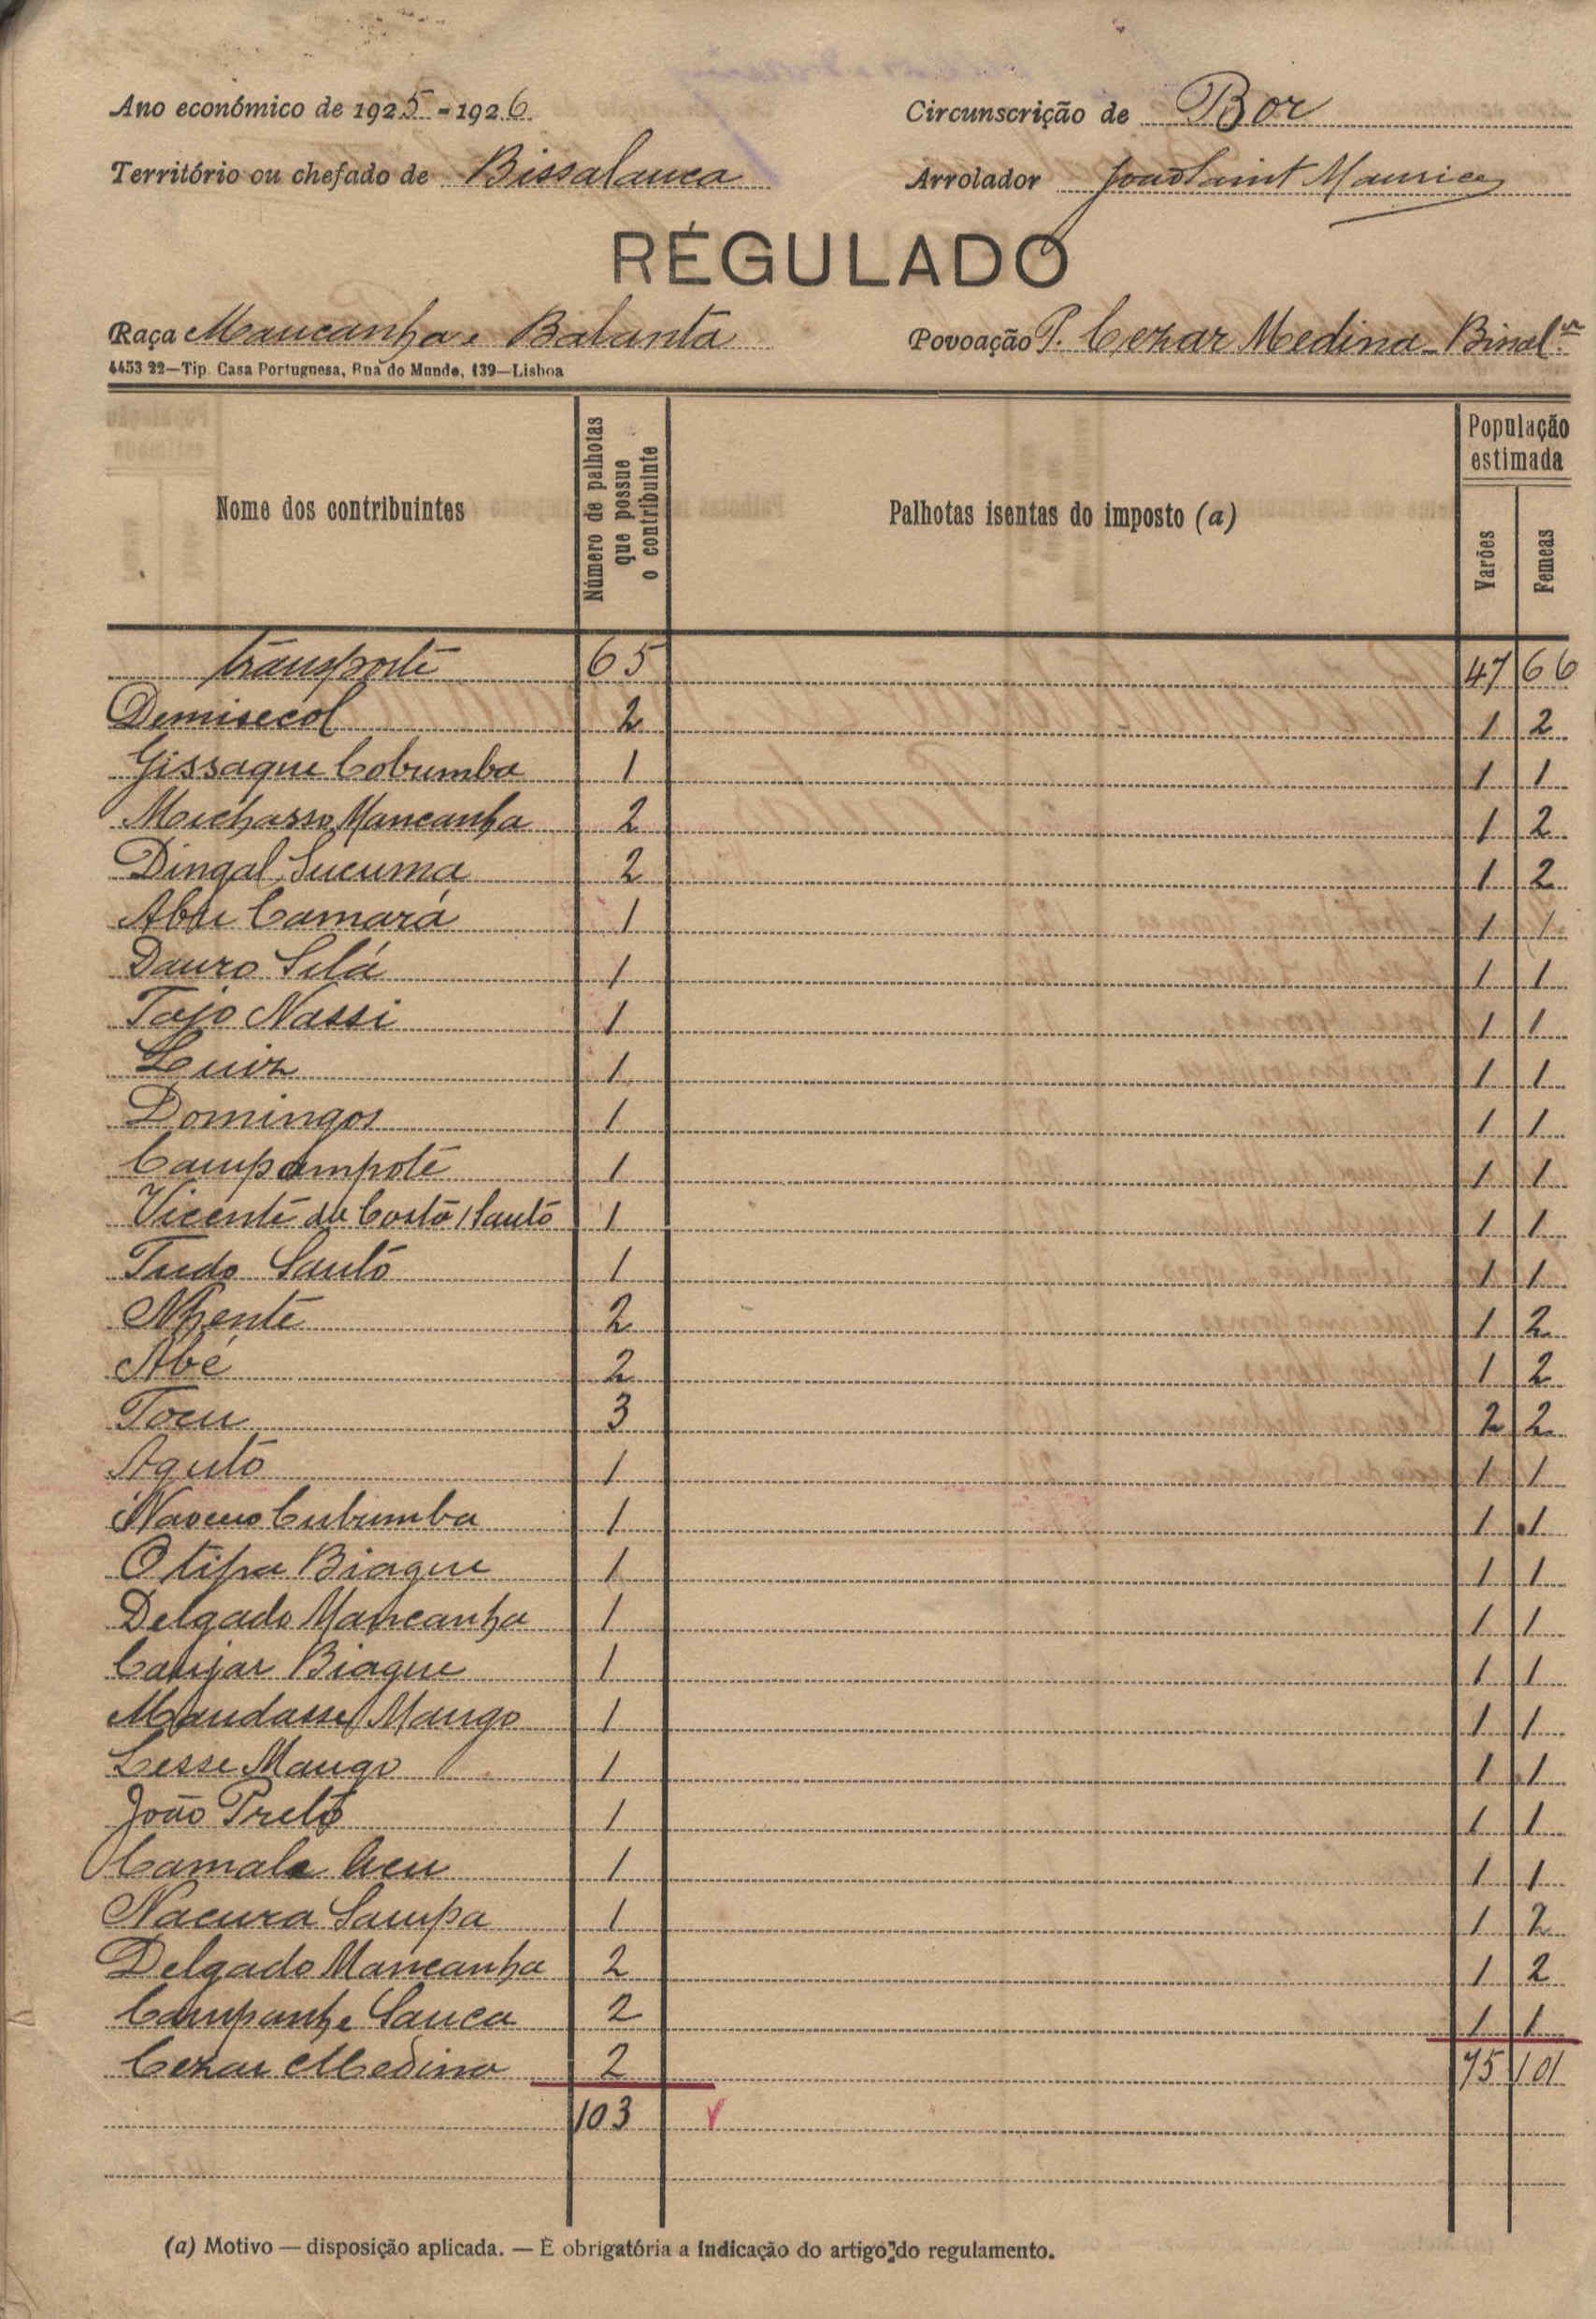 Ano económico de 1925-1926 Circunscrição de Bor
Território ou chefado de Bissalanca Arrolador João Saint Maurice
RÉGULADO
Raça Mancanha e Balanta Povoação P. Cezar Medina - Binal
4453 22—Tip. Casa Portuguesa, Rua do Mundo, 139—Lisboa
Nome dos contribuintes Número de palhotas que possue o contribuinte Palhotas isentas do imposto (a) População estimada Varões Femeas
transporte 65 47 66
Demisecol 2 1 2
Gissaque Cobumba 1 1 1
Michasso Mancanha 2 1 2
Dingal Sucuma 2 1 2
Abu Camará 1 1 1
Dauro Silá 1 1 1
Tojo Nassi 1 1 1
Luiz 1 1 1
Domingos 1 1 1
Campampote 1 1 1
Vicente da Costa Santo 1 1 1
Tudo Santo 1 1 1
Nhente 2 1 2
Abé 2 1 2
Tocu 3 2 2
Aguto 1 1 1
Cubumba 1 1 1
Otipa Biague 1 1 1
Delgado Mancanha 1 1 1
Canjar Biague 1 1 1
Mandasse Mango 1 1 1
Lesse Mango 1 1 1
João Preto 1 1 1
Camala Cucu 1 1 1
Nacura Sampa 1 1 2
Delgado Mancanha 2 1 2
Campanhe Sanca 2 1 1
Cezar Medina 2 75 101
103
(a) Motivo — disposição aplicada. — É obrigatória a indicação do artigo do regulamento.